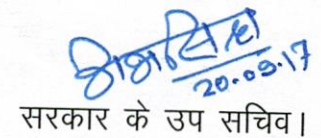 20.09.17
सरकार के उप सचिव।